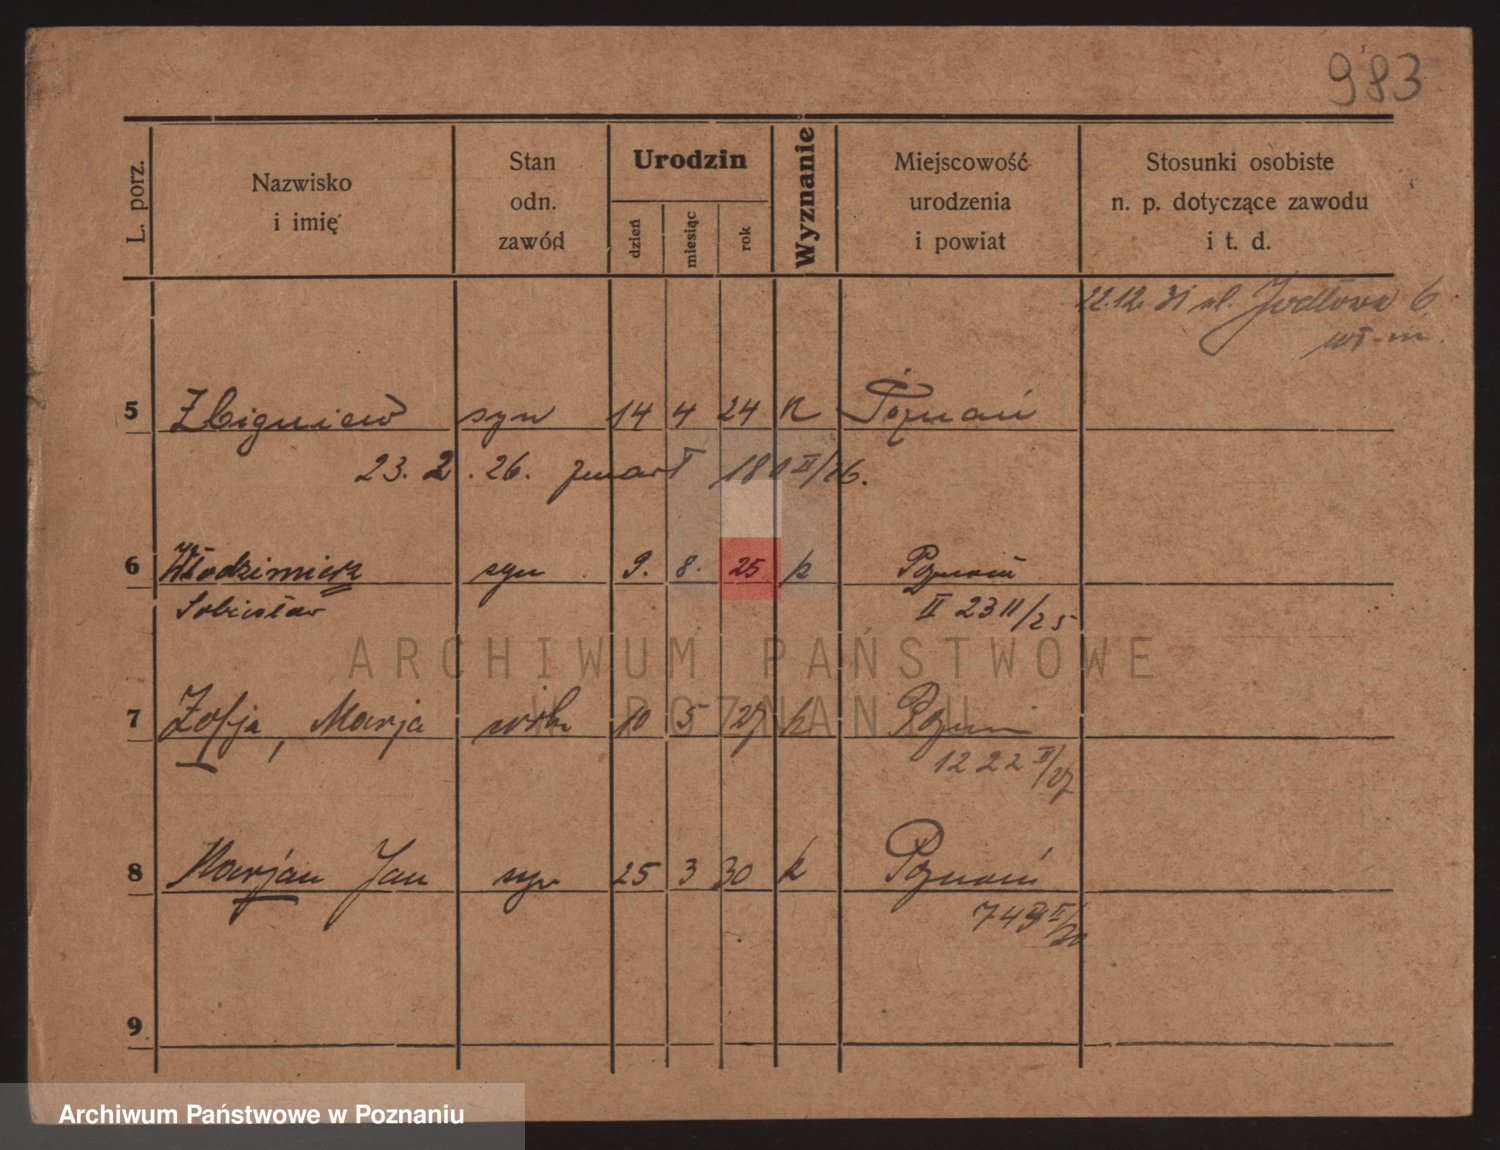 983
L. porz.
Nazwisko
i imię
Stan
odn.
zawód
Urodzin
dzień
miesiąc
rok
Wyznanie
Miejscowość
urodzenia
i powiat
Stosunki osobiste
n. p. dotyczące zawodu
i t. d.
22.12.31 ul. Jodłowa 6
5 Zbigniew syn 14 4 24 k Poznań
23. 2. 26. zmarł II/26.
6 Włodzimierz syn 9. 8. 25 k Poznań
Sobiesław II 2311/25
ARCHIWUM PAŃSTWOWE
W POZNANIU
7 Zofja, Marja 10 5 27 k Poznań
1222 II/27
8 Marjan Jan syn 25 3 30 k Poznań
749 II/30
9
Archiwum Państwowe w Poznaniu